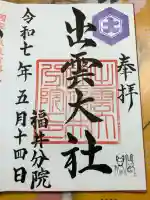 奉拝
出雲大社
福井分院
令和七年五月十四日